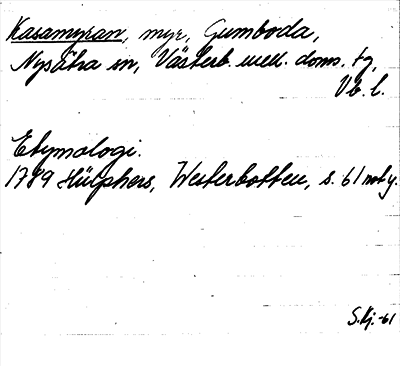 Kasamyran, myr, Gumboda,
Nysätra sn, Västerb. mell. doms. tg,
Vb. l.
Etymologi.
1789 Hülphers, Westerbotten, s. 61 not y.
S.Kj.-61